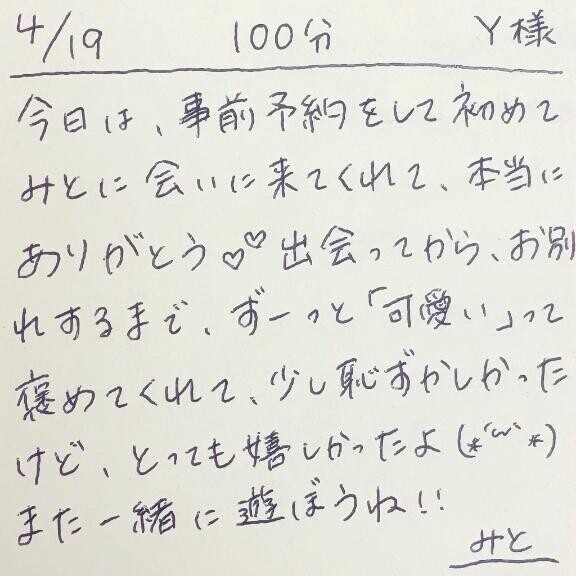 4/19 100分 Y様
今日は、事前予約をして初めて
みとに会いに来てくれて、本当に
ありがとう♡♡出会ってから、お別
れするまで、ずーっと「可愛い」って
褒めてくれて、少し恥ずかしかった
けど、とっても嬉しかったよ(*´ω`*)
また一緒に遊ぼうね!!
みと